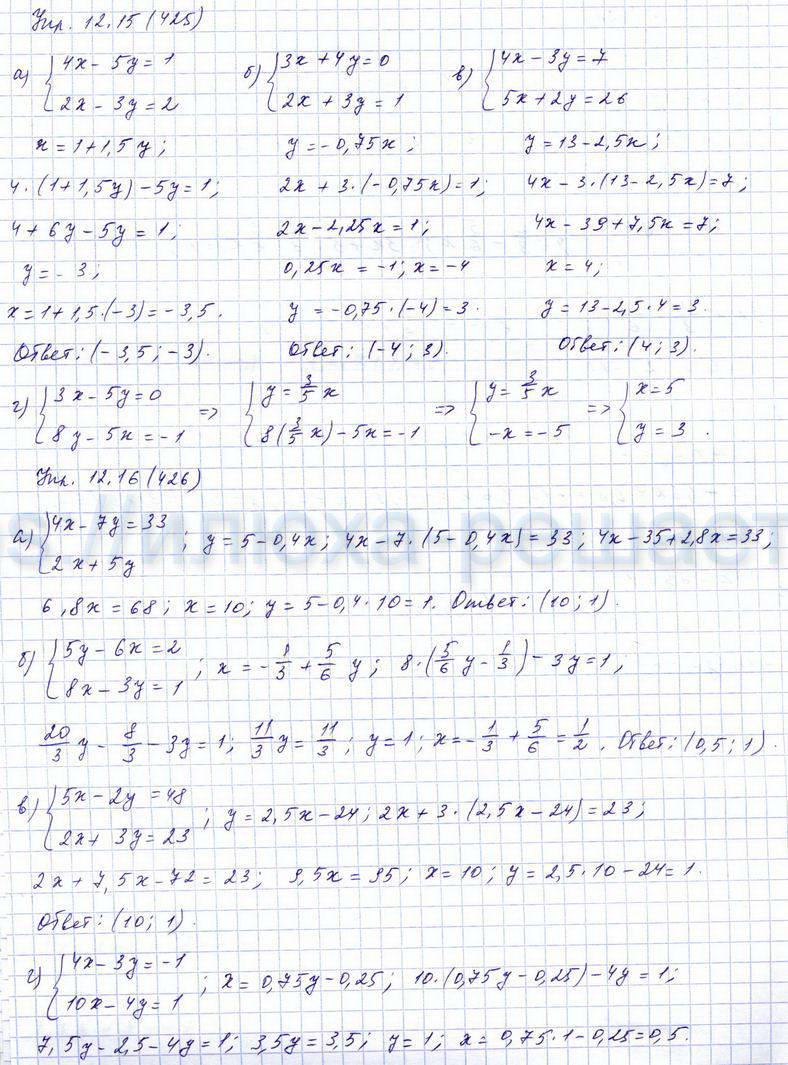 Упр. 12.15 (425)
а) { 4x - 5y = 1
2x - 3y = 2
x = 1 + 1,5y;
4·(1 + 1,5y) - 5y = 1;
4 + 6y - 5y = 1;
y = - 3;
x = 1 + 1,5·(-3) = -3,5.
Ответ: (-3,5; -3).
б) { 3x + 4y = 0
2x + 3y = 1
y = -0,75x;
2x + 3·(-0,75x) = 1;
2x - 2,25x = 1;
0,25x = -1; x = -4
y = -0,75·(-4) = 3.
Ответ: (-4; 3).
в) { 4x - 3y = 7
5x + 2y = 26
y = 13 - 2,5x;
4x - 3·(13 - 2,5x) = 7;
4x - 39 + 7,5x = 7;
x = 4;
y = 13 - 2,5·4 = 3.
Ответ: (4; 3).
г) { 3x - 5y = 0 => { y = 3/5 x => { y = 3/5 x => { x = 5
8y - 5x = -1 8(3/5 x) - 5x = -1 -x = -5 y = 3.
Упр. 12.16 (426)
а) { 4x - 7y = 33 ; y = 5 - 0,4x; 4x - 7·(5 - 0,4x) = 33; 4x - 35 + 2,8x = 33;
2x + 5y
6,8x = 68; x = 10; y = 5 - 0,4·10 = 1. Ответ: (10; 1).
б) { 5y - 6x = 2 ; x = -1/3 + 5/6 y; 8·(5/6 y - 1/3) - 3y = 1;
8x - 3y = 1
20/3 y - 8/3 - 3y = 1; 11/3 y = 11/3; y = 1; x = -1/3 + 5/6 = 1/2. Ответ: (0,5; 1).
в) { 5x - 2y = 48 ; y = 2,5x - 24; 2x + 3·(2,5x - 24) = 23;
2x + 3y = 23
2x + 7,5x - 72 = 23; 9,5x = 95; x = 10; y = 2,5·10 - 24 = 1.
Ответ: (10; 1).
г) { 4x - 3y = -1 ; x = 0,75y - 0,25; 10·(0,75y - 0,25) - 4y = 1;
10x - 4y = 1
7,5y - 2,5 - 4y = 1; 3,5y = 3,5; y = 1; x = 0,75·1 - 0,25 = 0,5.